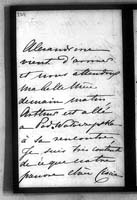 Alexandrine
vient d'arriver
et nous attendons
ma belle Mère
demain matin,
Arthur est allé
à
à sa rencontre
Je suis très contente
de ce que notre
pauvre chère